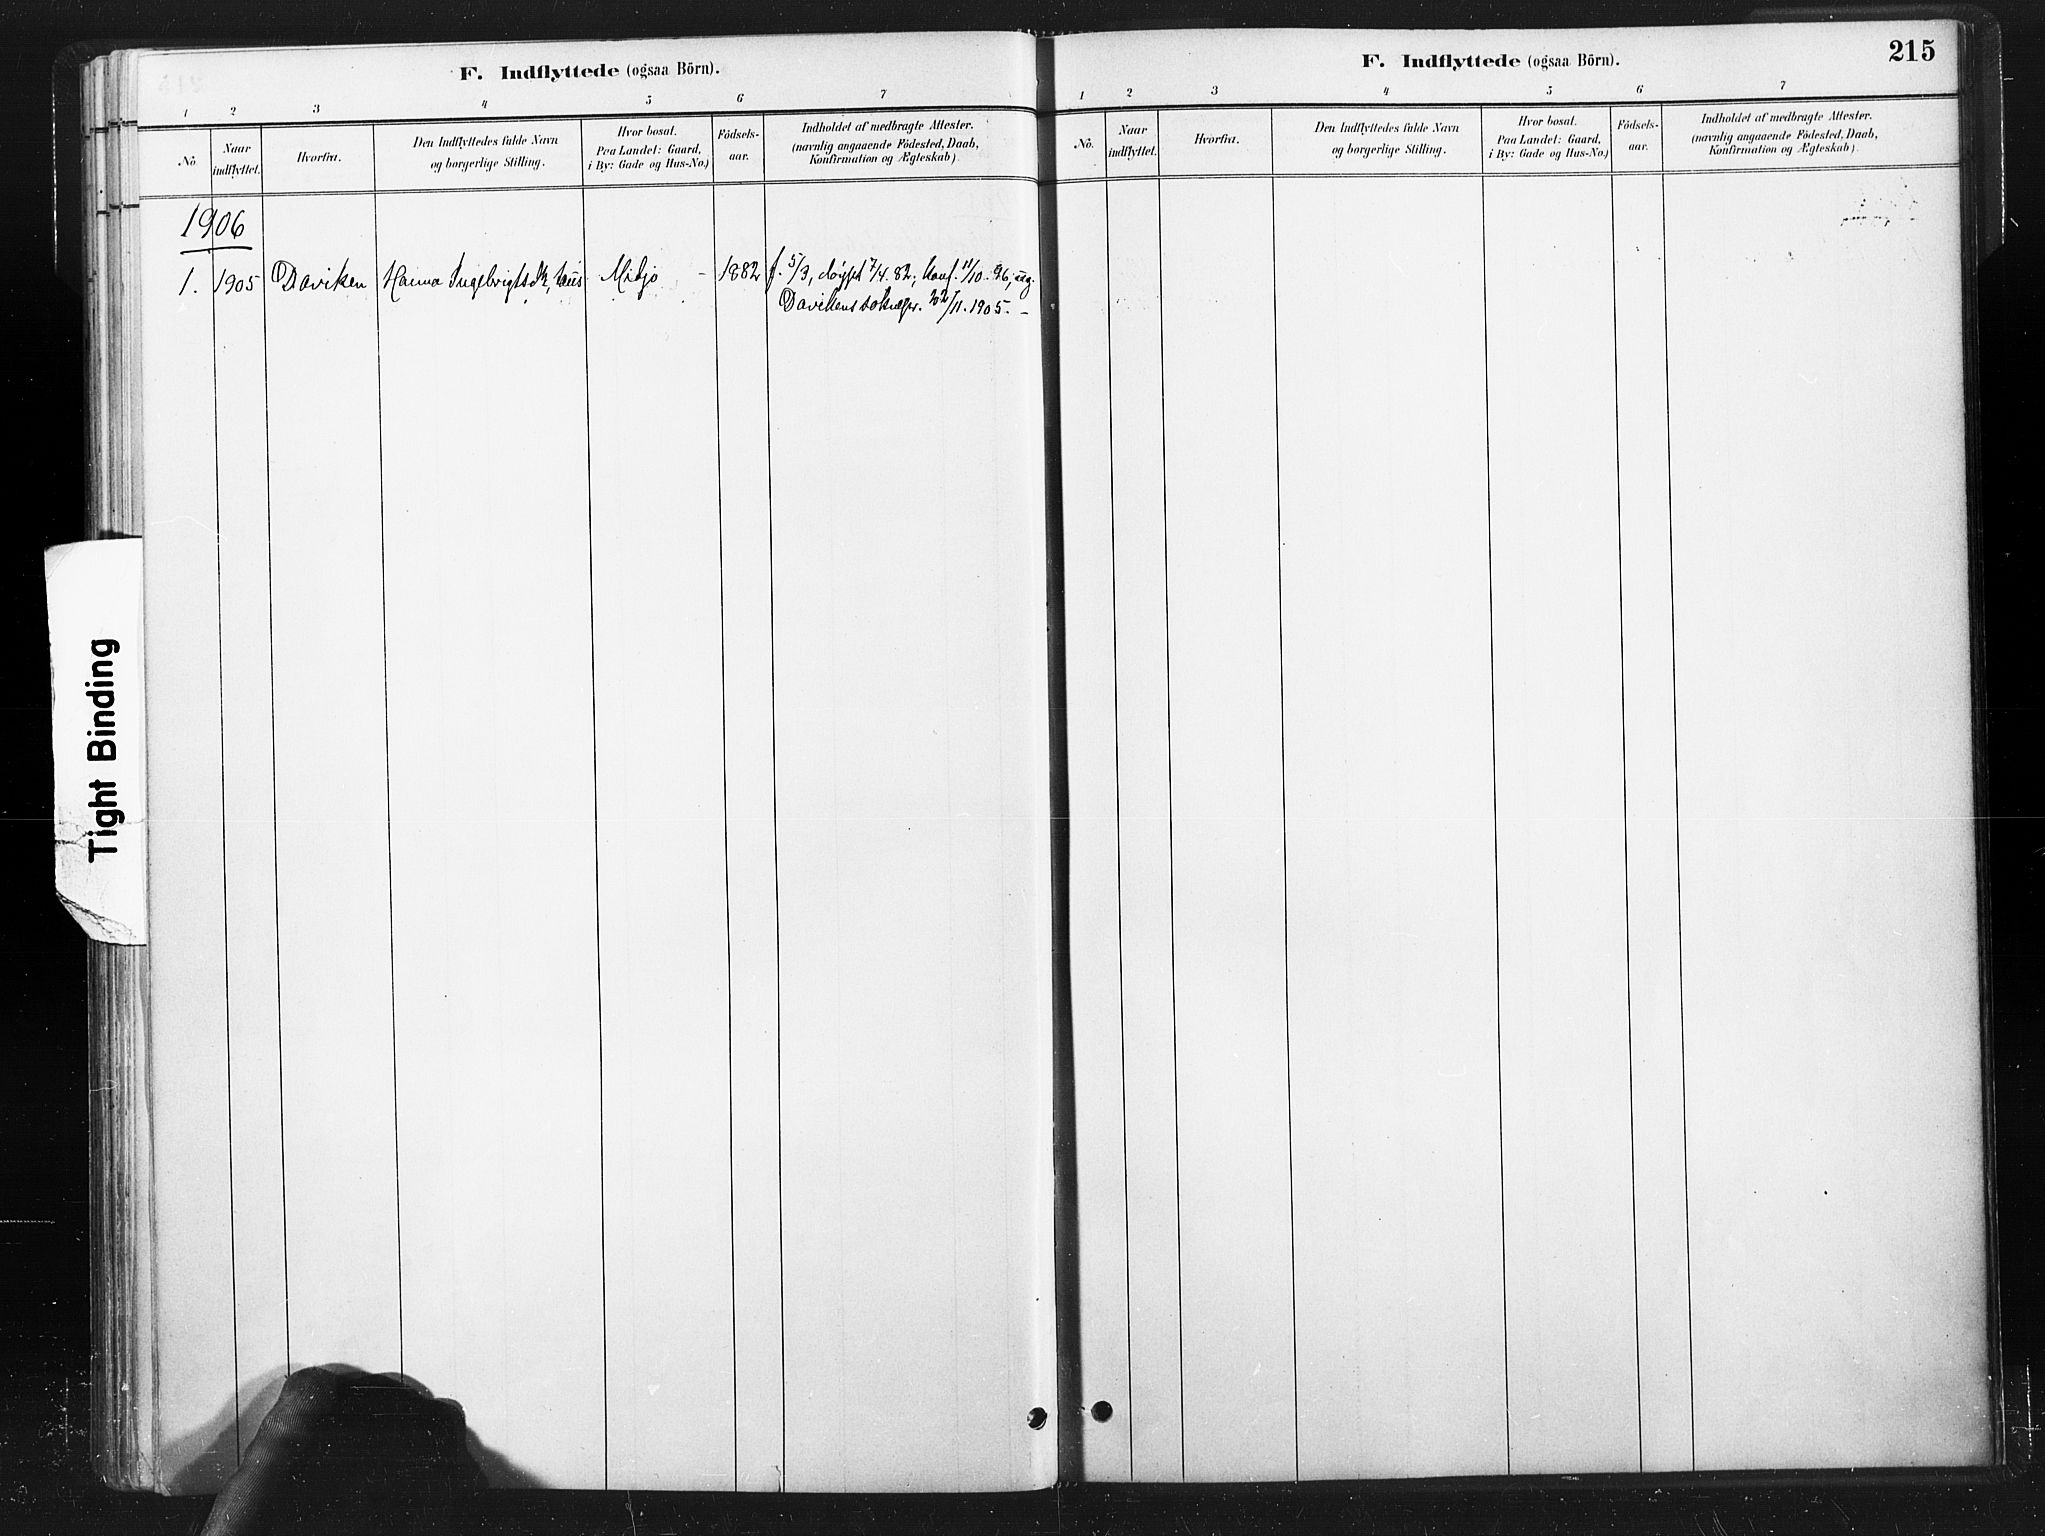 F. Indflyttede (ogsaa Börn).
1 2 3 4 5 6 7
No. Naar indflyttet. Hvorfra. Den Indflyttedes fulde Navn og borgerlige Stilling. Hvor bosat. Paa Landet: Gaard, i By: Gade og Hus-No.) Födsels-aar. Indholdet af medbragte Attester. (navnlig angaaende Födested, Daab, Konfirmation og Ægteskab).
1906
1. 1905 Daviken Hanna Ingebrigtsdtr, Midjo - 1882 f. 5/3, döypt 7/4. 82; konf. 11/10. 96,
Davikens 22/11. 1905. -
F. Indflyttede (ogsaa Börn).
215
1 2 3 4 5 6 7
No. Naar indflyttet. Hvorfra. Den Indflyttedes fulde Navn og borgerlige Stilling. Hvor bosat. Paa Landet: Gaard, i By: Gade og Hus-No.) Födsels-aar. Indholdet af medbragte Attester. (navnlig angaaende Födested, Daab, Konfirmation og Ægteskab).
Tight Binding